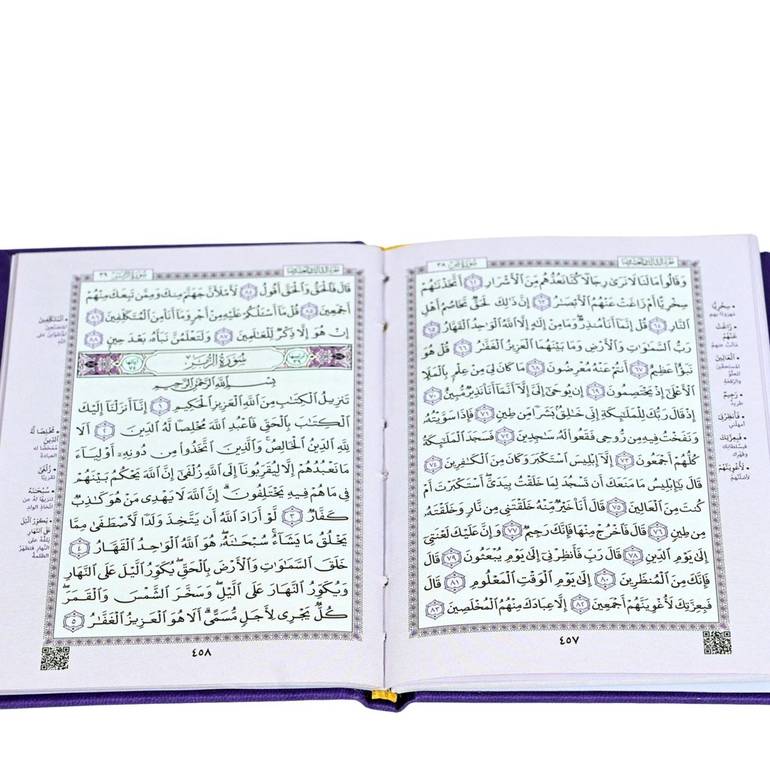 سُورَةُ صٓ ٣٨
وَقَالُواْ مَا لَنَا لَا نَرَىٰ رِجَالٗا كُنَّا نَعُدُّهُم مِّنَ ٱلۡأَشۡرَارِ ٦٢ أَتَّخَذۡنَٰهُمۡ
سِخۡرِيًّا أَمۡ زَاغَتۡ عَنۡهُمُ ٱلۡأَبۡصَٰرُ ٦٣ إِنَّ ذَٰلِكَ لَحَقّٞ تَخَاصُمُ أَهۡلِ
ٱلنَّارِ ٦٤ قُلۡ إِنَّمَآ أَنَا۠ مُنذِرٞۖ وَمَا مِنۡ إِلَٰهٍ إِلَّا ٱللَّهُ ٱلۡوَٰحِدُ ٱلۡقَهَّارُ ٦٥
رَبُّ ٱلسَّمَٰوَٰتِ وَٱلۡأَرۡضِ وَمَا بَيۡنَهُمَا ٱلۡعَزِيزُ ٱلۡغَفَّٰرُ ٦٦ قُلۡ هُوَ
نَبَؤٌاْ عَظِيمٌ ٦٧ أَنتُمۡ عَنۡهُ مُعۡرِضُونَ ٦٨ مَا كَانَ لِيَ مِنۡ عِلۡمِۭ بِٱلۡمَلَإِ
ٱلۡأَعۡلَىٰٓ إِذۡ يَخۡتَصِمُونَ ٦٩ إِن يُوحَىٰٓ إِلَيَّ إِلَّآ أَنَّمَآ أَنَا۠ نَذِيرٞ مُّبِينٌ ٧٠
إِذۡ قَالَ رَبُّكَ لِلۡمَلَٰٓئِكَةِ إِنِّي خَٰلِقُۢ بَشَرٗا مِّن طِينٖ ٧١ فَإِذَا سَوَّيۡتُهُۥ
وَنَفَخۡتُ فِيهِ مِن رُّوحِي فَقَعُواْ لَهُۥ سَٰجِدِينَ ٧٢ فَسَجَدَ ٱلۡمَلَٰٓئِكَةُ
كُلُّهُمۡ أَجۡمَعُونَ ٧٣ إِلَّآ إِبۡلِيسَ ٱسۡتَكۡبَرَ وَكَانَ مِنَ ٱلۡكَٰفِرِينَ ٧٤
قَالَ يَٰٓإِبۡلِيسُ مَا مَنَعَكَ أَن تَسۡجُدَ لِمَا خَلَقۡتُ بِيَدَيَّۖ أَسۡتَكۡبَرۡتَ أَمۡ
كُنتَ مِنَ ٱلۡعَالِينَ ٧٥ قَالَ أَنَا۠ خَيۡرٞ مِّنۡهُ خَلَقۡتَنِي مِن نَّارٖ وَخَلَقۡتَهُۥ
مِن طِينٖ ٧٦ قَالَ فَٱخۡرُجۡ مِنۡهَا فَإِنَّكَ رَجِيمٞ ٧٧ وَإِنَّ عَلَيۡكَ لَعۡنَتِيٓ
إِلَىٰ يَوۡمِ ٱلدِّينِ ٧٨ قَالَ رَبِّ فَأَنظِرۡنِيٓ إِلَىٰ يَوۡمِ يُبۡعَثُونَ ٧٩ قَالَ
فَإِنَّكَ مِنَ ٱلۡمُنظَرِينَ ٨٠ إِلَىٰ يَوۡمِ ٱلۡوَقۡتِ ٱلۡمَعۡلُومِ ٨١ قَالَ
فَبِعِزَّتِكَ لَأُغۡوِيَنَّهُمۡ أَجۡمَعِينَ ٨٢ إِلَّا عِبَادَكَ مِنۡهُمُ ٱلۡمُخۡلَصِينَ ٨٣
٤٥٧
سِخْرِيًّا
زَاغَتْ
عَنْهُمُ
الْعَالِينَ
رَجِيمٌ
فَأَنظِرْنِي
أمهلني
فَبِعِزَّتِكَ
لَأُغْوِيَنَّهُمْ
سُورَةُ الزُّمَرِ ٣٩
قَالَ فَٱلۡحَقُّ وَٱلۡحَقَّ أَقُولُ ٨٤ لَأَمۡلَأَنَّ جَهَنَّمَ مِنكَ وَمِمَّن تَبِعَكَ مِنۡهُمۡ
أَجۡمَعِينَ ٨٥ قُلۡ مَآ أَسۡـَٔلُكُمۡ عَلَيۡهِ مِنۡ أَجۡرٖ وَمَآ أَنَا۠ مِنَ ٱلۡمُتَكَلِّفِينَ ٨٦
إِنۡ هُوَ إِلَّا ذِكۡرٞ لِّلۡعَٰلَمِينَ ٨٧ وَلَتَعۡلَمُنَّ نَبَأَهُۥ بَعۡدَ حِينِۭ ٨٨
سُورَةُ الزُّمَرِ
بِسۡمِ ٱللَّهِ ٱلرَّحۡمَٰنِ ٱلرَّحِيمِ
تَنزِيلُ ٱلۡكِتَٰبِ مِنَ ٱللَّهِ ٱلۡعَزِيزِ ٱلۡحَكِيمِ ١ إِنَّآ أَنزَلۡنَآ إِلَيۡكَ
ٱلۡكِتَٰبَ بِٱلۡحَقِّ فَٱعۡبُدِ ٱللَّهَ مُخۡلِصٗا لَّهُ ٱلدِّينَ ٢ أَلَا
لِلَّهِ ٱلدِّينُ ٱلۡخَالِصُۚ وَٱلَّذِينَ ٱتَّخَذُواْ مِن دُونِهِۦٓ أَوۡلِيَآءَ
مَا نَعۡبُدُهُمۡ إِلَّا لِيُقَرِّبُونَآ إِلَى ٱللَّهِ زُلۡفَىٰٓ إِنَّ ٱللَّهَ يَحۡكُمُ بَيۡنَهُمۡ
فِي مَا هُمۡ فِيهِ يَخۡتَلِفُونَۗ إِنَّ ٱللَّهَ لَا يَهۡدِي مَنۡ هُوَ كَٰذِبٞ
كَفَّارٞ ٣ لَّوۡ أَرَادَ ٱللَّهُ أَن يَتَّخِذَ وَلَدٗا لَّٱصۡطَفَىٰ مِمَّا
يَخۡلُقُ مَا يَشَآءُۚ سُبۡحَٰنَهُۥۖ هُوَ ٱللَّهُ ٱلۡوَٰحِدُ ٱلۡقَهَّارُ ٤
خَلَقَ ٱلسَّمَٰوَٰتِ وَٱلۡأَرۡضَ بِٱلۡحَقِّۖ يُكَوِّرُ ٱلَّيۡلَ عَلَى ٱلنَّهَارِ
وَيُكَوِّرُ ٱلنَّهَارَ عَلَى ٱلَّيۡلِۖ وَسَخَّرَ ٱلشَّمۡسَ وَٱلۡقَمَرَۖ
كُلّٞ يَجۡرِي لِأَجَلٖ مُّسَمًّىۗ أَلَا هُوَ ٱلۡعَزِيزُ ٱلۡغَفَّٰرُ ٥
٤٥٨
الْمُتَكَلِّفِينَ
مُخْلِصًا لَّهُ
الدِّينَ
زُلْفَى
سُبْحَانَهُ
يُكَوِّرُ اللَّيْلَ
عَلَى النَّهَارِ